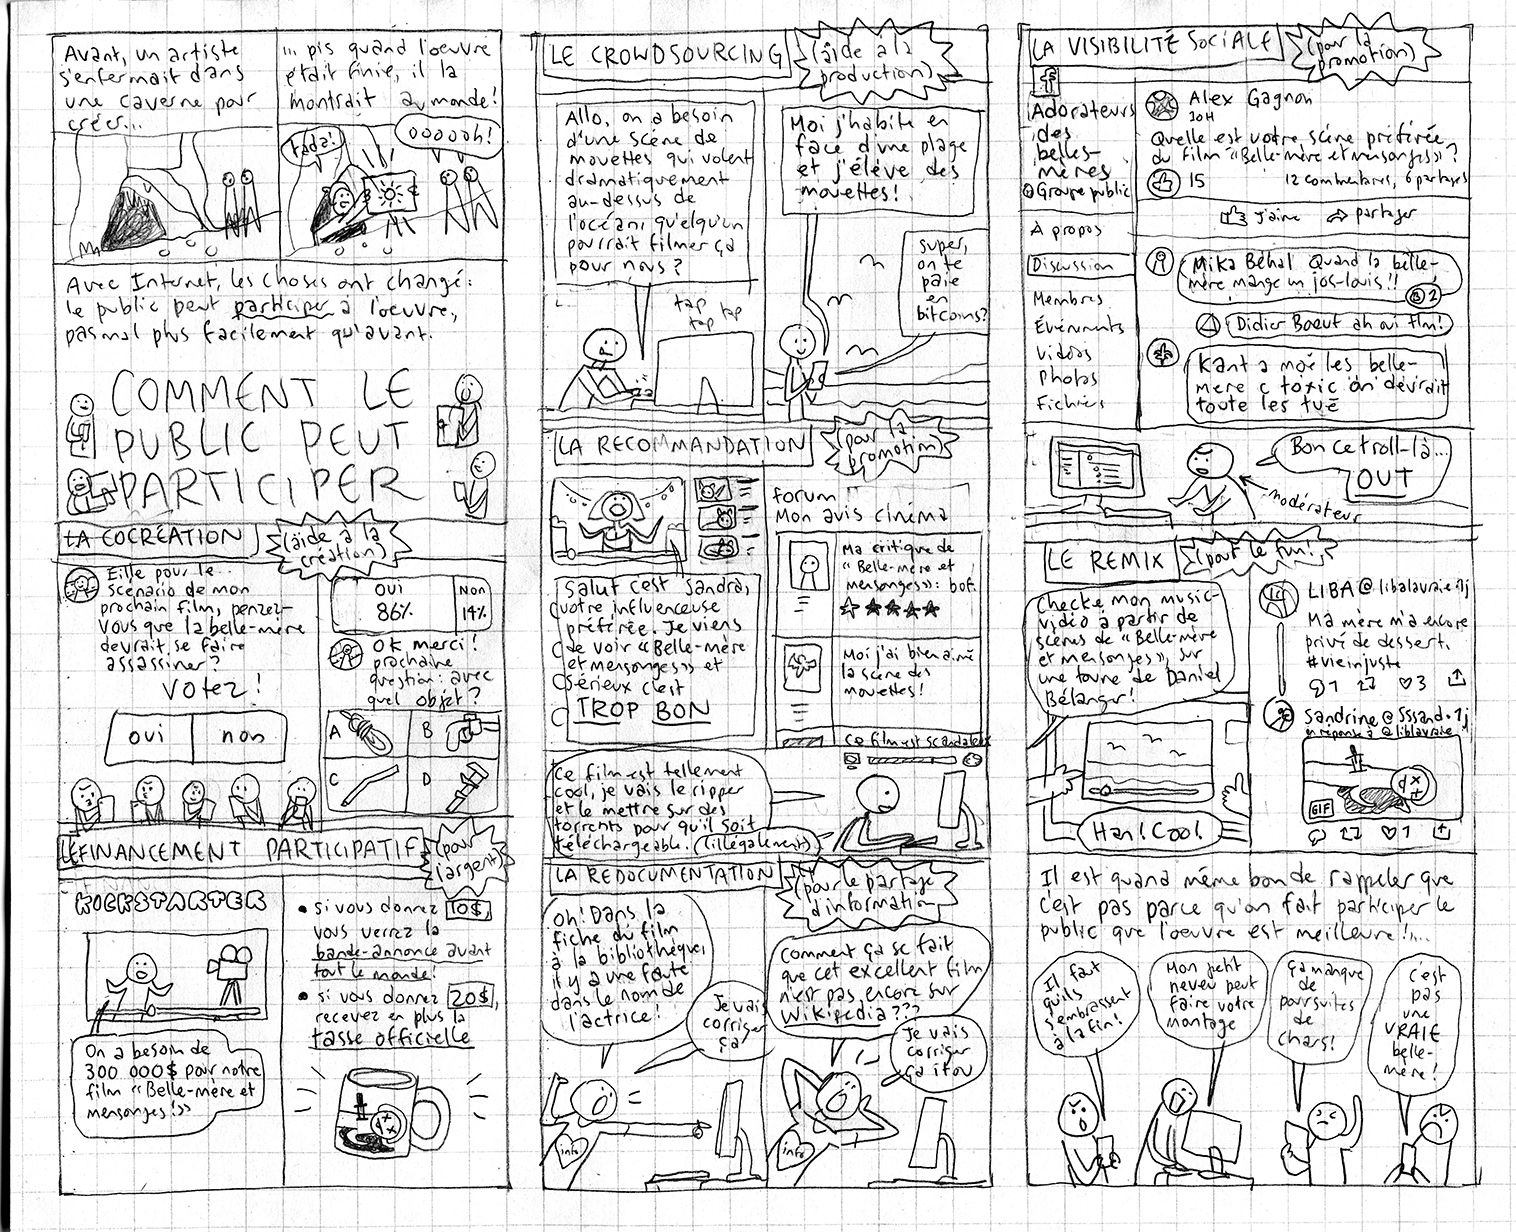 Avant, un artiste
s'enfermait dans
une caverne pour
créer...
... pis quand l'oeuvre
était finie, il la
montrait au monde!
tada!
oooooh!
Avec Internet, les choses ont changé:
le public peut participer à l'oeuvre,
pas mal plus facilement qu'avant.
COMMENT LE
PUBLIC PEUT
PARTICIPER
LA COCRÉATION
(aide à la
création)
Eille pour le
scénario de mon
prochain film, pensez-
vous que la belle-mère
devrait se faire
assassiner?
VOTEZ!
oui
non
OUI
86%
NON
14%
OK merci!
prochaine
question: avec
quel objet?
A
B
C
D
LE FINANCEMENT PARTICIPATIF
(pour
l'argent)
KICKSTARTER
On a besoin de
300 000$ pour notre
film «Belle-mère et
mensonges!»
• si vous donnez 10$,
vous verrez la
bande-annonce avant
tout le monde!
• si vous donnez 20$,
recevez en plus la
tasse officielle
LE CROWDSOURCING
(aide à la
production)
Allo, on a besoin
d'une scène de
mouettes qui volent
dramatiquement
au-dessus de
l'océan, quelqu'un
pourrait filmer ça
pour nous?
tap
tap tap
tap
Moi j'habite en
face d'une plage
et j'élève des
mouettes!
super,
on te
paie
en
bitcoins?
LA RECOMMANDATION
(pour la
promotion)
Salut c'est Sandra,
votre influenceuse
préférée. Je viens
de voir «Belle-mère
et mensonges» et
sérieux c'est
TROP BON
forum
Mon avis cinéma
Ma critique de
«Belle-mère et
mensonges»: bof.
Moi j'ai bien aimé
la scène des
mouettes!
Ce film est scandaleux
Ce film est tellement
cool, je vais le ripper
et le mettre sur des
torrents pour qu'il soit
téléchargeable! (illégalement)
LA REDOCUMENTATION
(pour le partage
d'information)
Oh! Dans la
fiche du film
à la bibliothèque,
il y a une faute
dans le nom de
l'actrice!
Je vais
corriger
ça
info
Comment ça se fait
que cet excellent film
n'est pas encore sur
Wikipédia???
Je vais
corriger
ça itou
info
LA VISIBILITÉ SOCIALE
(pour la
promotion)
f
Adorateurs
des
belles-
mères
Groupe public
A propos
Discussion
Membres
Événements
Vidéos
Photos
Fichiers
Alex Gagnon
10H
Quelle est votre scène préférée
du film «Belle-mère et mensonges»?
15
12 commentaires, 6 partages
j'aime
partager
Mika Béhal Quand la belle-
mère mange un jos-louis!!
2
Didier Boeuf ah oui tlm!
Kant a moé les belle-
mere c toxic on devrait
toute les tué
Bon ce troll-là...
OUT
modérateur
LE REMIX
(pour le fun!)
Checke mon music-
vidéo à partir de
scènes de «Belle-mère
et mensonges», sur
une toune de Daniel
Bélanger!
Han! Cool!
LIBA @libalavraie • 1j
Ma mère m'a encore
privé de dessert.
#vieinjuste
1
3
Sandrine @Sssand • 1j
en réponse à @libalavraie
GIF
1
Il est quand même bon de rappeler que
c'est pas parce qu'on fait participer le
public que l'oeuvre est meilleure!...
Il faut
qu'ils
s'embrassent
à la fin!
Mon petit
neveu peut
faire votre
montage
Ça manque
de
poursuites
de
chars!
c'est
pas
une
VRAIE
belle-
mère!